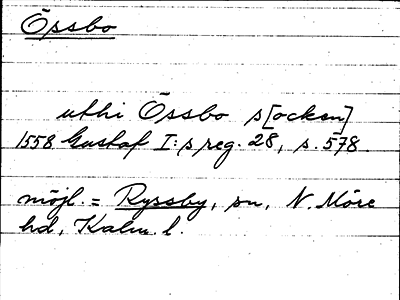 Össbo
uthi Össbo s[ocken]
1558 Gustaf I:s reg. 28, s. 578.
möjl. = Ryssby, sn, N. Möre
hd, Kalm. l.